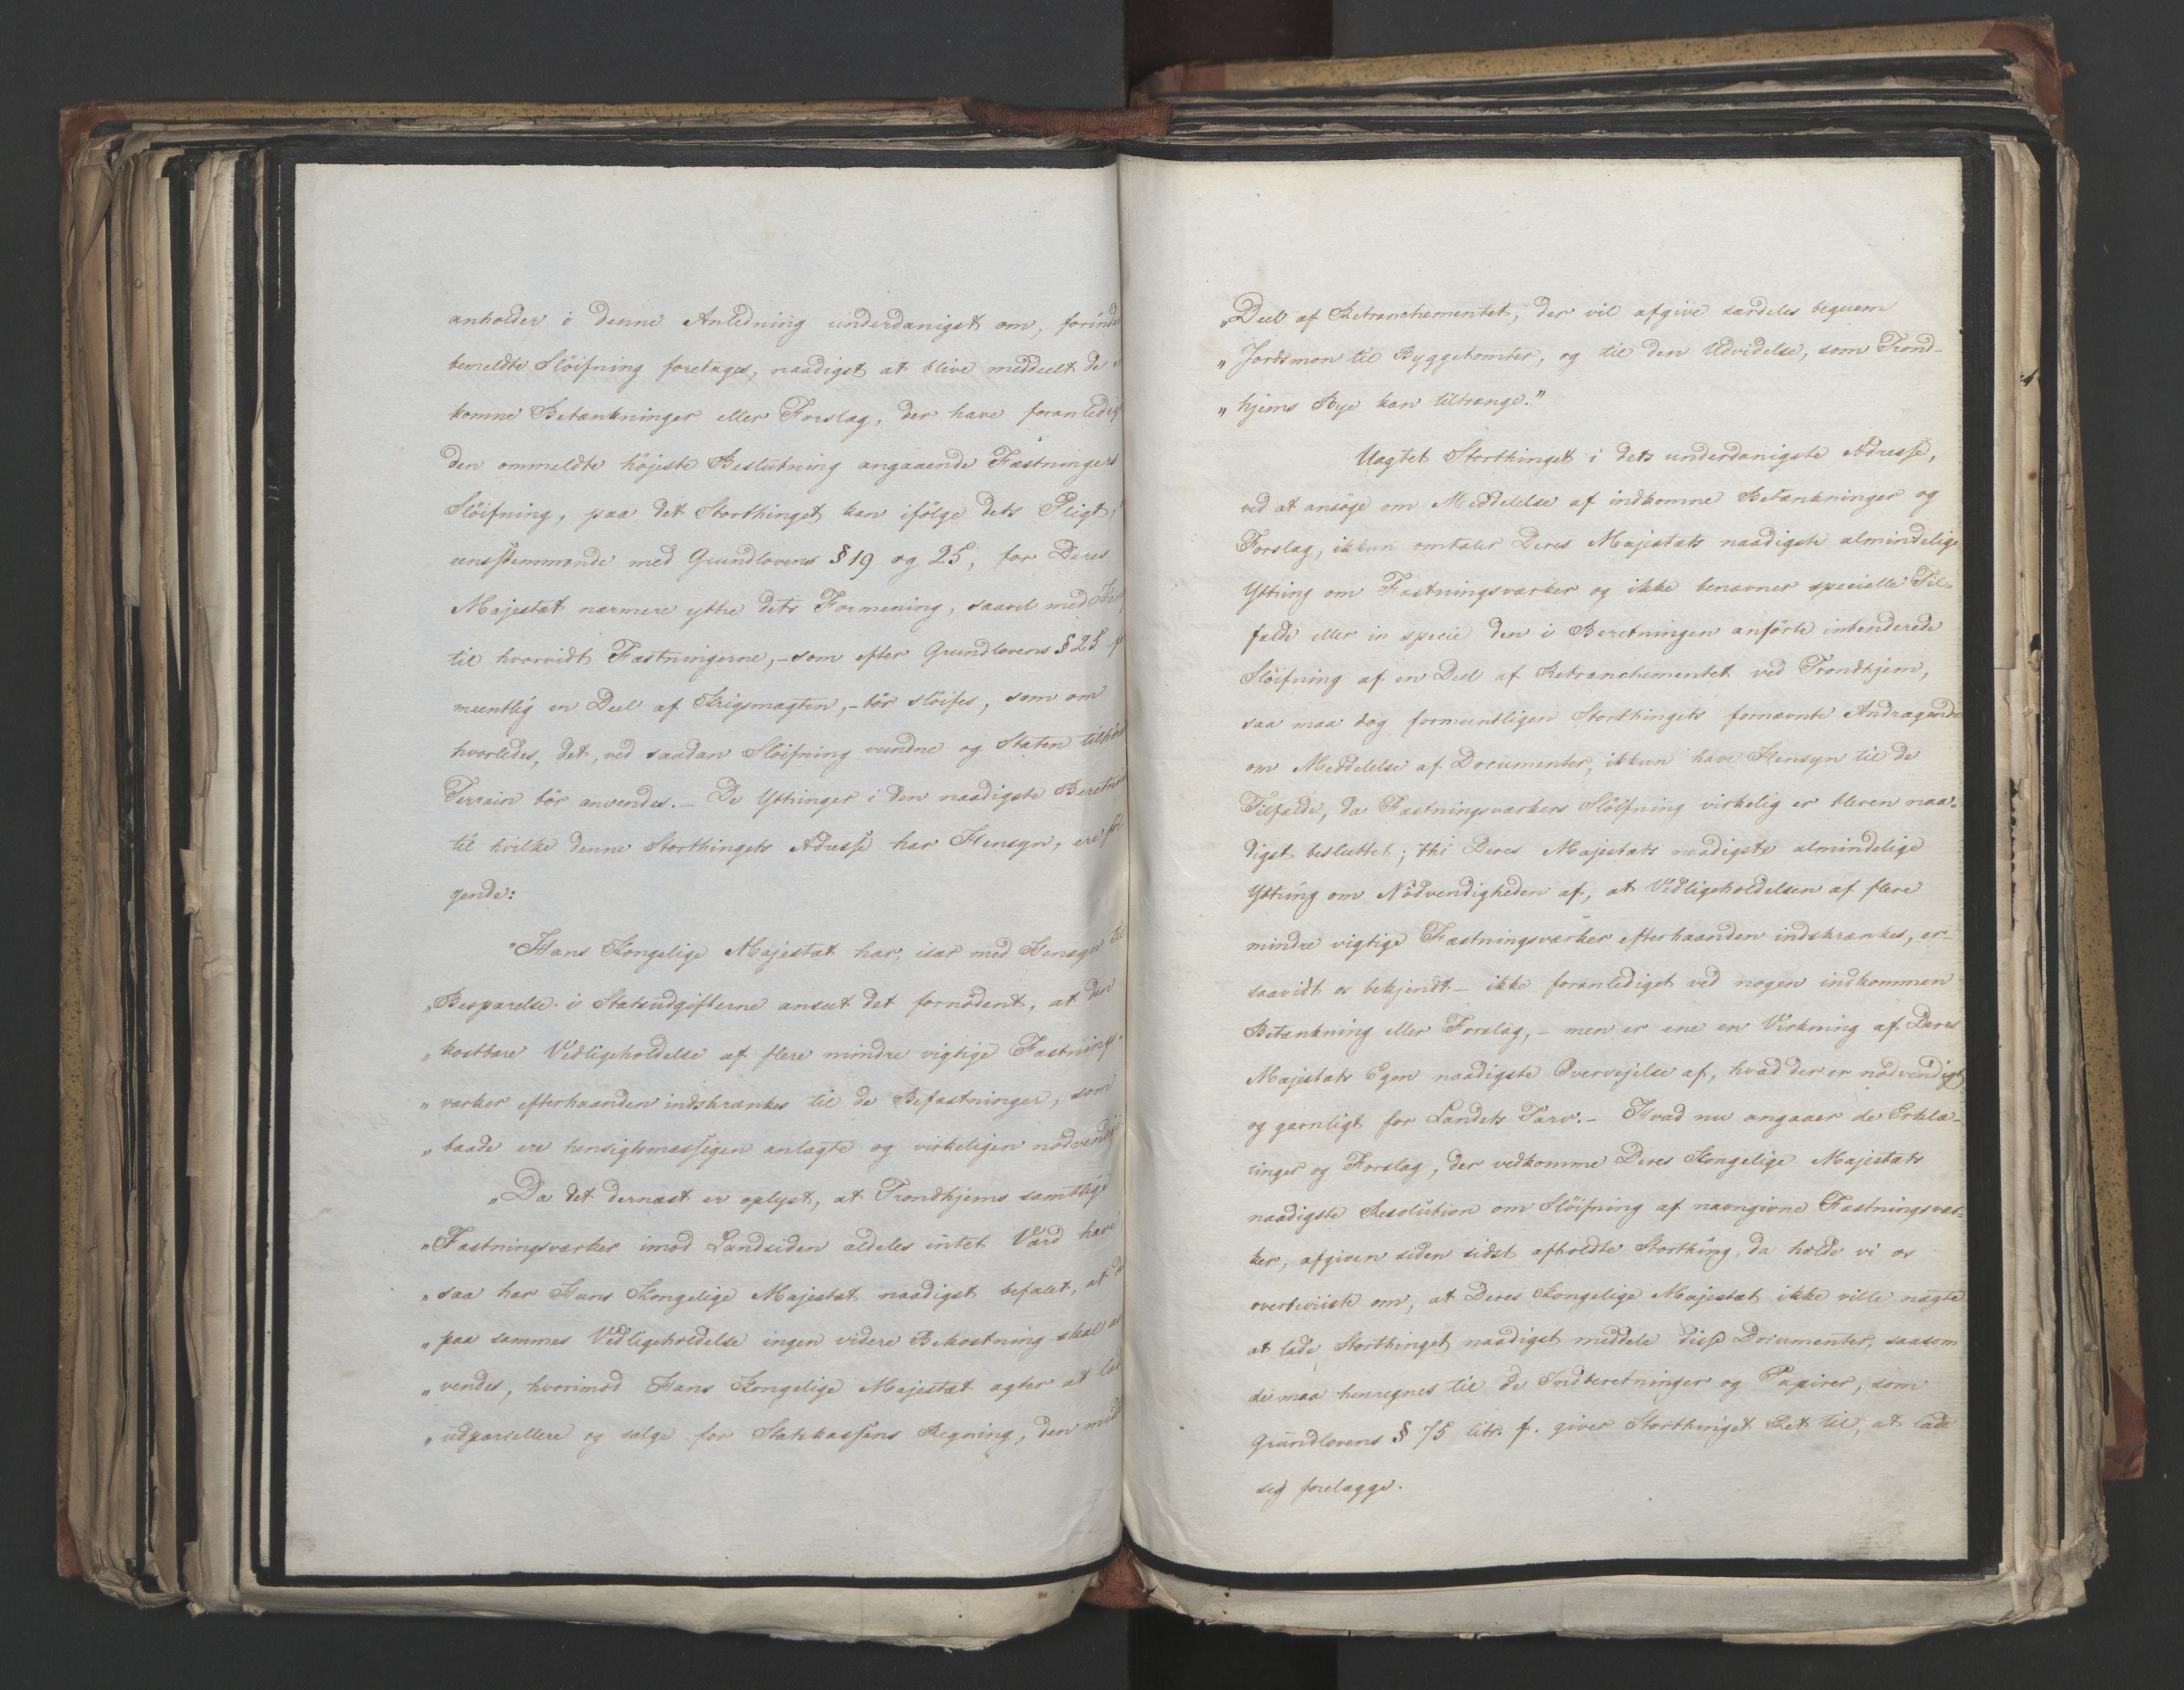 anholder i denne Anledning underdanigst om, forinde
bemeldte Slöifning foretages, naadigst at blive meddeelt de
komne Betænkninger eller Forslag, der have foranledig
den ommeldte höjeste Beslutning angaaende Fæstningers
Slöifning, paa det Storthinget kan ifölge dets Pligt,
eensstemmende med Grundlovens § 19 og 25, for Deres
Majestæt nærmere yttre dets Formening, saavel med
til hvorvidt Fæstningerne, - som efter Grundlovens § 25
meentlig en Deel af Krigsmagten, - bör slöifes, som om
hvorledes, det, ved saadan Slöifning vundne og Staten tilhör
Terrain bör anvendes. - De Yttringer i den naadigste Beretn
til hvilke denne Storthingets Adresse har Hensyn, ere föl
gende:
"Hans Kongelige Majestæt har, især med Hensyn til
„Besparelse i Statsudgifterne anseet det fornödent, at den
„kostbare Vedligeholdelse af flere mindre vigtige Fæstnings-
„værker efterhaanden indskrænkes til de Befæstninger, som
„baade ere hensigtsmæssigen anlagte og virkeligen nödvendig
„Da det dernæst er oplyst, at Trondhjems samtlige
„Fæstningsværker imod Landsiden aldeles intet Værd have
„saa har Hans Kongelige Majestæt naadigst befalet, at d
„paa sammes Vedligeholdelse ingen videre Bekostning skal a
„vendes, hvorimod Hans Kongelige Majestæt agter at lad
„udparcellere og sælge for Statskassens Regning, den
„Deel af Retranchementet, der vil afgive særdeles beqvem
„Jordsmon til Byggetomter, og til den Udvidelse, som Trond-
„hjems Bye kan tiltrænge."
Uagtet Storthinget i dets underdanigste Adresse,
ved at ansöge om Meddelelse af indkomne Betænkninger og
Forslag, ikkun omtaler Deres Majestæts naadigste almindelige
Yttring om Fæstningsværker og ikke benævner specielle Til-
fælde eller in specie den i Beretningen anförte intenderede
Slöifning af en Deel af Retranchementet ved Trondhjem,
saa maa dog formeentligen Storthingets fornævnte Andragende
om Meddelelse af Documenter, ikkun have Hensyn til de
Tilfælde, da Fæstningsværkers Slöifning virkelig er bleven naa-
digst besluttet; thi Deres Majestæts naadigste almindelige
Yttring om Nödvendigheden af, at Vedligeholdelsen af flere
mindre vigtige Fæstningsværker efterhaanden indskrænkes, er -
saavidt os bekjendt - ikke foranlediget ved nogen indkommen
Betænkning eller Forslag, - men er ene en Virkning af Deres
Majestæts Egen naadigste Overvejelse af, hvad der er nödvendigt
og gavnligt for Landets Tarv. - Hvad nu angaaer de Erklæ-
ringer og Forslag, der vedkomme Deres Kongelige Majestæts
naadigste Resolution om Slöifning af navngivne Fæstningsvær-
ker, afgiven siden sidst afholdte Storthing, da holde vi os
overbeviiste om, at Deres Kongelige Majestæt ikke ville nægte
at lade Storthinget naadigst meddele disse Documenter, saasom
de maa henregnes til de Indberetninger og Papirer, som
Grundlovens § 75 litr. f. giver Storthinget Ret til, at lade
sig forelægge.